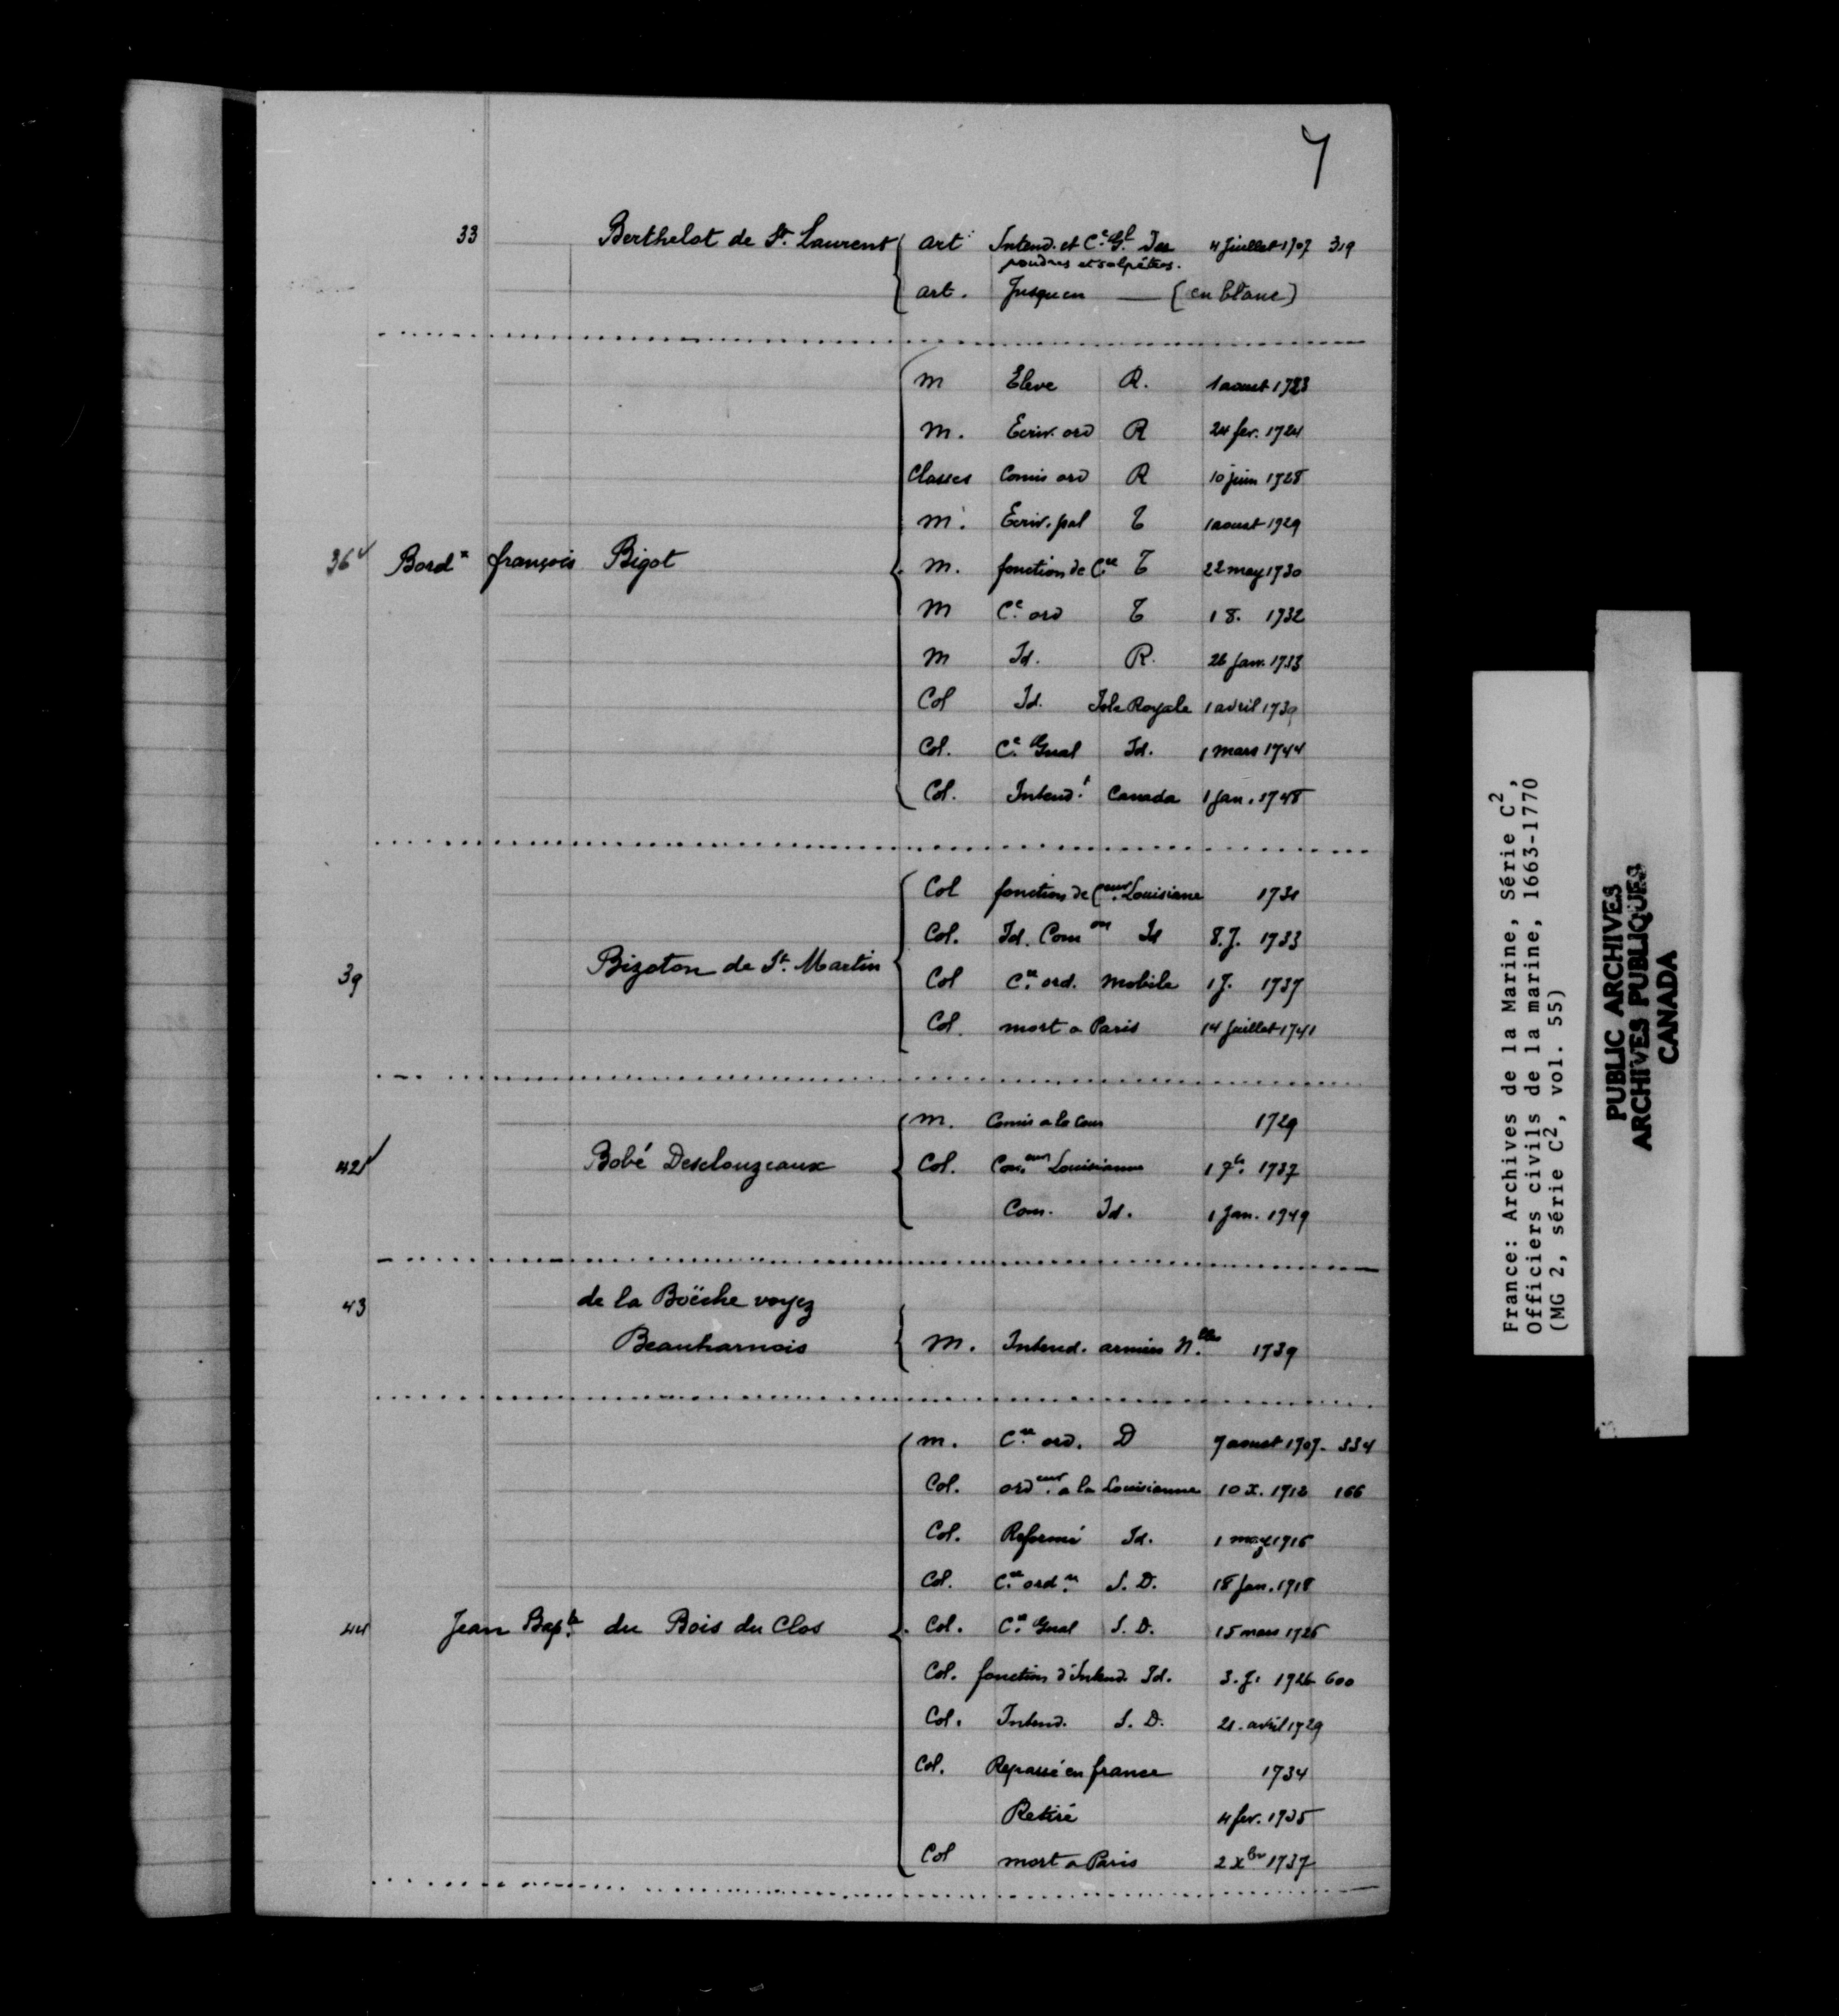 7
33 Berthelot de St. Laurent art. Intend. et Ce. Gl des 4 juillet 1707 319
poudres et salpêtres.
art. Jusqu'en — (en blanc)
m Élève R. 1 aoust 1723
m. Ecriv. ord R 24 fev. 1724
Classes Comis ord R 10 juin 1728
m. Ecriv. pal T 1 aoust 1729
36 Bordx françois Bigot m. fonction de Cre T 22 may 1730
m Ce. ord T 1 8. 1732
m Id. R. 26 janv. 1733
Col Id. Isle Royale 1 avril 1739
Col. Ce. Gnal Id. 1 mars 1744
Col. Intend.t Canada 1 jan. 1748
Col fonction de Ceur. Louisiane 1731
Col. Id. Comon Id 8. J. 1733
39 Bizoton de St. Martin
Col Cre. ord. mobile 1 J. 1737
Col. mort a Paris 14 juillet 1741
m. Comis a la Cour 1729
42 Bobé Desclouzeaux Col. Con.eur Louisianne 1 7b. 1737
Com. Id. 1 jan. 1749
43 de la Boëche voyez
Beauharnois m. Intend. armées N.lles 1739
m. Cre. ord. D 7 aoust 1707. 334
Col. ordeur. a la Louisianne 10 X. 1712 166
Col. Reformé Id. 1 may 1716
Col. Cre. ord.re S. D. 18 jan. 1718
44 Jean Bapte. du Bois du Clos Col. Cre. Gnal S. D. 15 mars 1726
Col. fonction d'Intend. Id. 3. J. 1726 600
Col. Intend. S. D. 21. avril 1729
Col. Repassé en france 1734
Retiré 4 fev. 1735
Col mort a Paris 2 Xbre 1737
France: Archives de la Marine, Série C2,
Officiers civils de la marine, 1663-1770
(MG 2, série C2, vol. 55)
PUBLIC ARCHIVES
ARCHIVES PUBLIQUES
CANADA